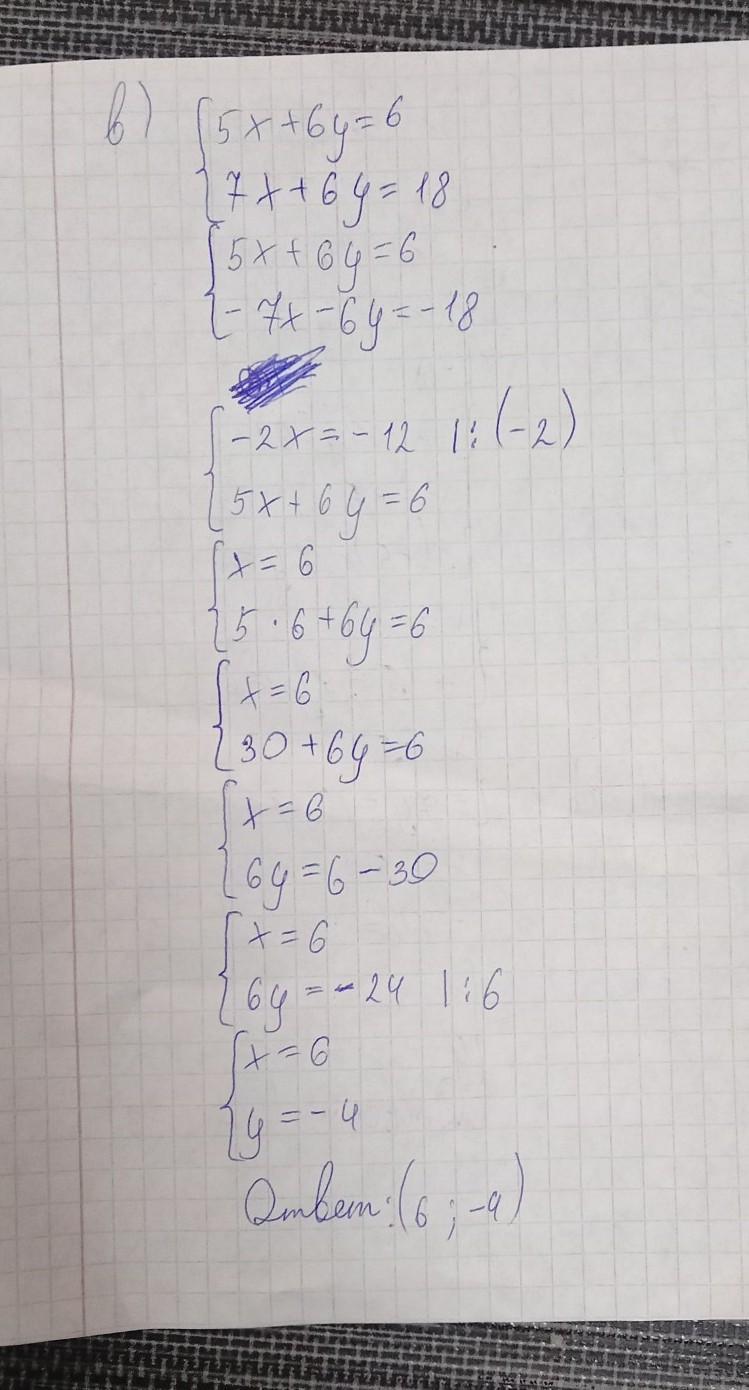 в) { 5x + 6y = 6
7x + 6y = 18
{ 5x + 6y = 6
- 7x - 6y = - 18
{ - 2x = - 12 |: (-2)
5x + 6y = 6
{ x = 6
5 · 6 + 6y = 6
{ x = 6
30 + 6y = 6
{ x = 6
6y = 6 - 30
{ x = 6
6y = - 24 |: 6
{ x = 6
y = - 4
Ответ: (6 ; -4)